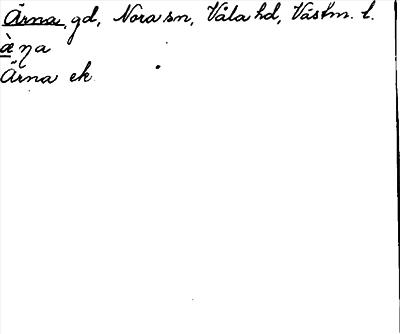 Ärna gd, Nora sn, Våla hd, Västm. l.
ä̀ɳa
Ärna ek